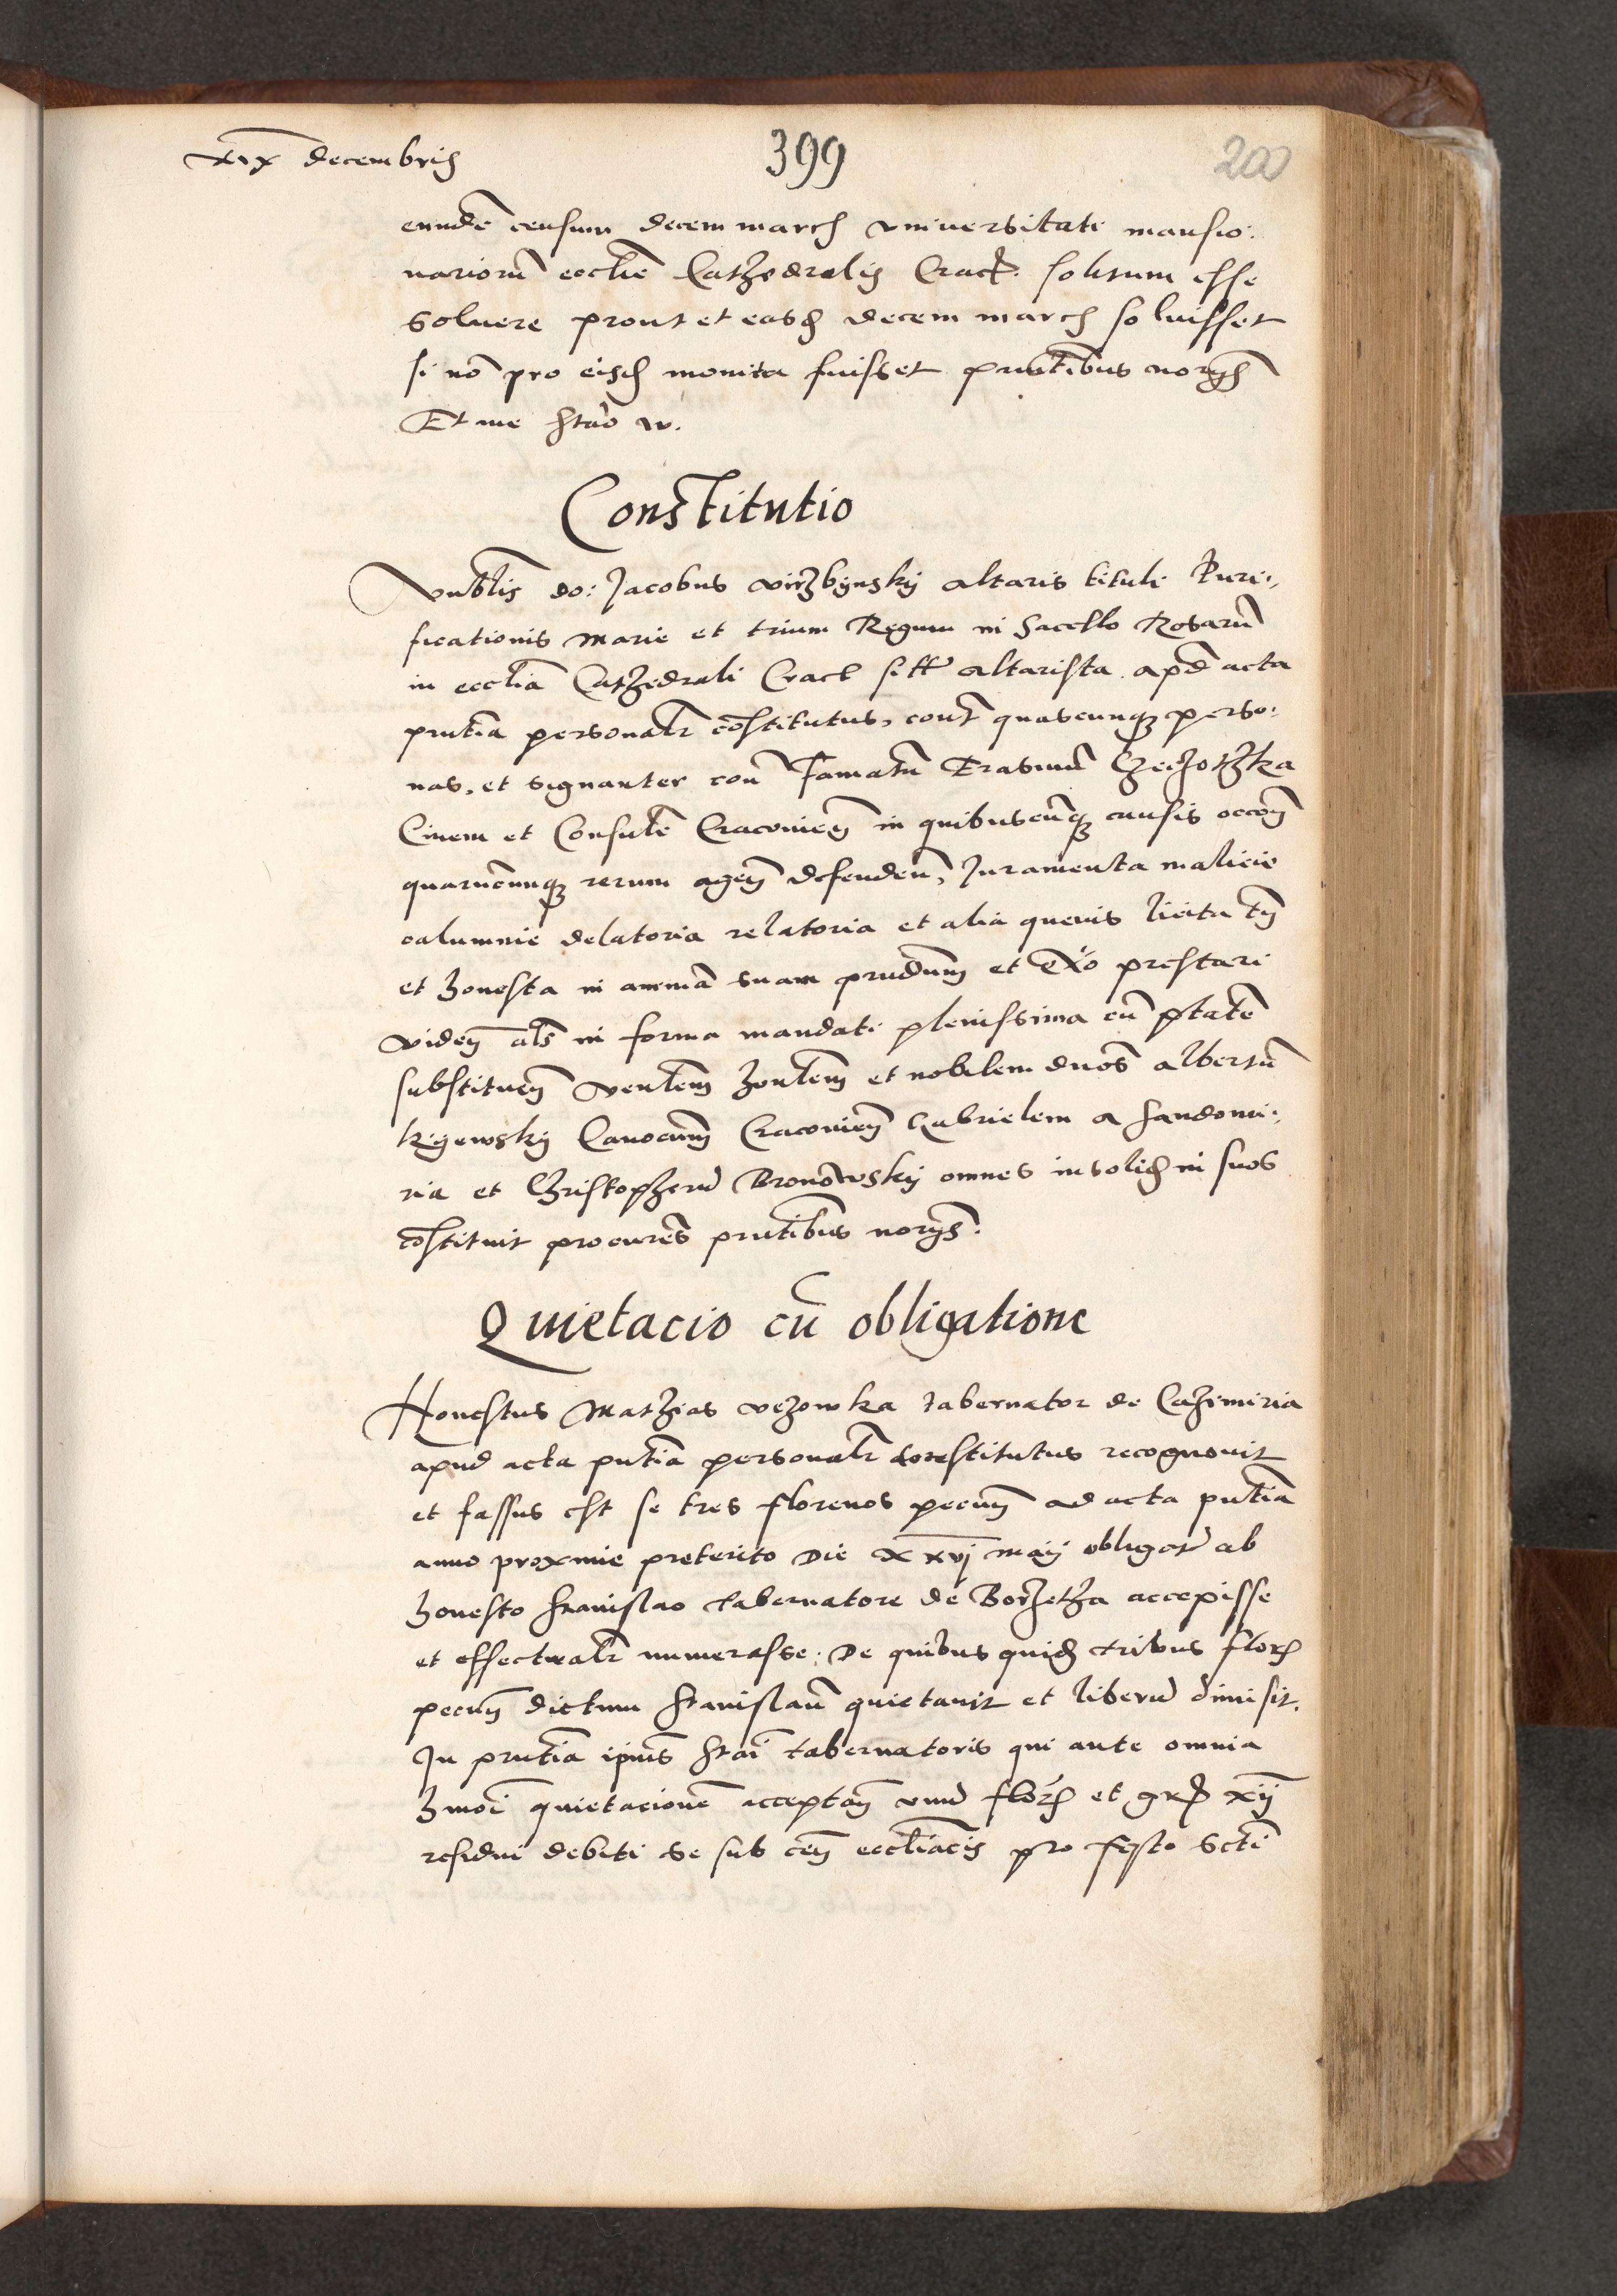 xix decembris
399
200
eundē censum decem marcs vniuersitati mansio:
nariorū ecclie Cathedralis Crac. solitum esse
soluere prout et easd decem marcs soluisset
si nō pro eisd monita fuisset prntibus norys
Et me
Constitutio
Vnblis do: Jacobus virzbynsky altaris tituli Puri,
ficationis Marie et trium Regum in Sacello Rosarū
in ecclia Cathedrali Crac siti altarista apd acta
prntia personalr cōstitutus, cont quascunqz perso:
nas, et signanter con Famatū Erasmū Czeczotzka
Ciuem et Consulē Cracovien in quibuscūqz causis occon
quarūcunqz rerum agen defenden, Juramenta malicie
calumnie delatoria relatoria et alia queuis licita tn
et honesta in animā suam prndum et prestari
viden als in forma mandati plenissima cū ptate
substituen venlem honlem et nobilem dnos albertū
kyewsky Canocum Cracovien Gabrielem a sandomi:
ria et Christopherū Bronowsky omnes insolid in suos
cōstituit procures prntibus norys.
Quietacio cū obligatione
Honestus Mathias vezowka tabernator de Cazimiria
apud acta pntia personalr constitutus recognovit
et fassus est se tres florenos pecun ad acta pntia
anno proxime preterito Die xxvj maij obligat ab
honesto stanislao tabernatore de Borzetha accepisse
et effectualr numerasse: De quibus quid tribus flors
pecun dictum stanislaū quietauit et liberū dimisit.
In prntia ipius stai tabernatoris qui ante omnia
hmoi quietacionē acceptan vnū flor et gr xij
residui debiti se sub cen eccliacis pro festo Scti